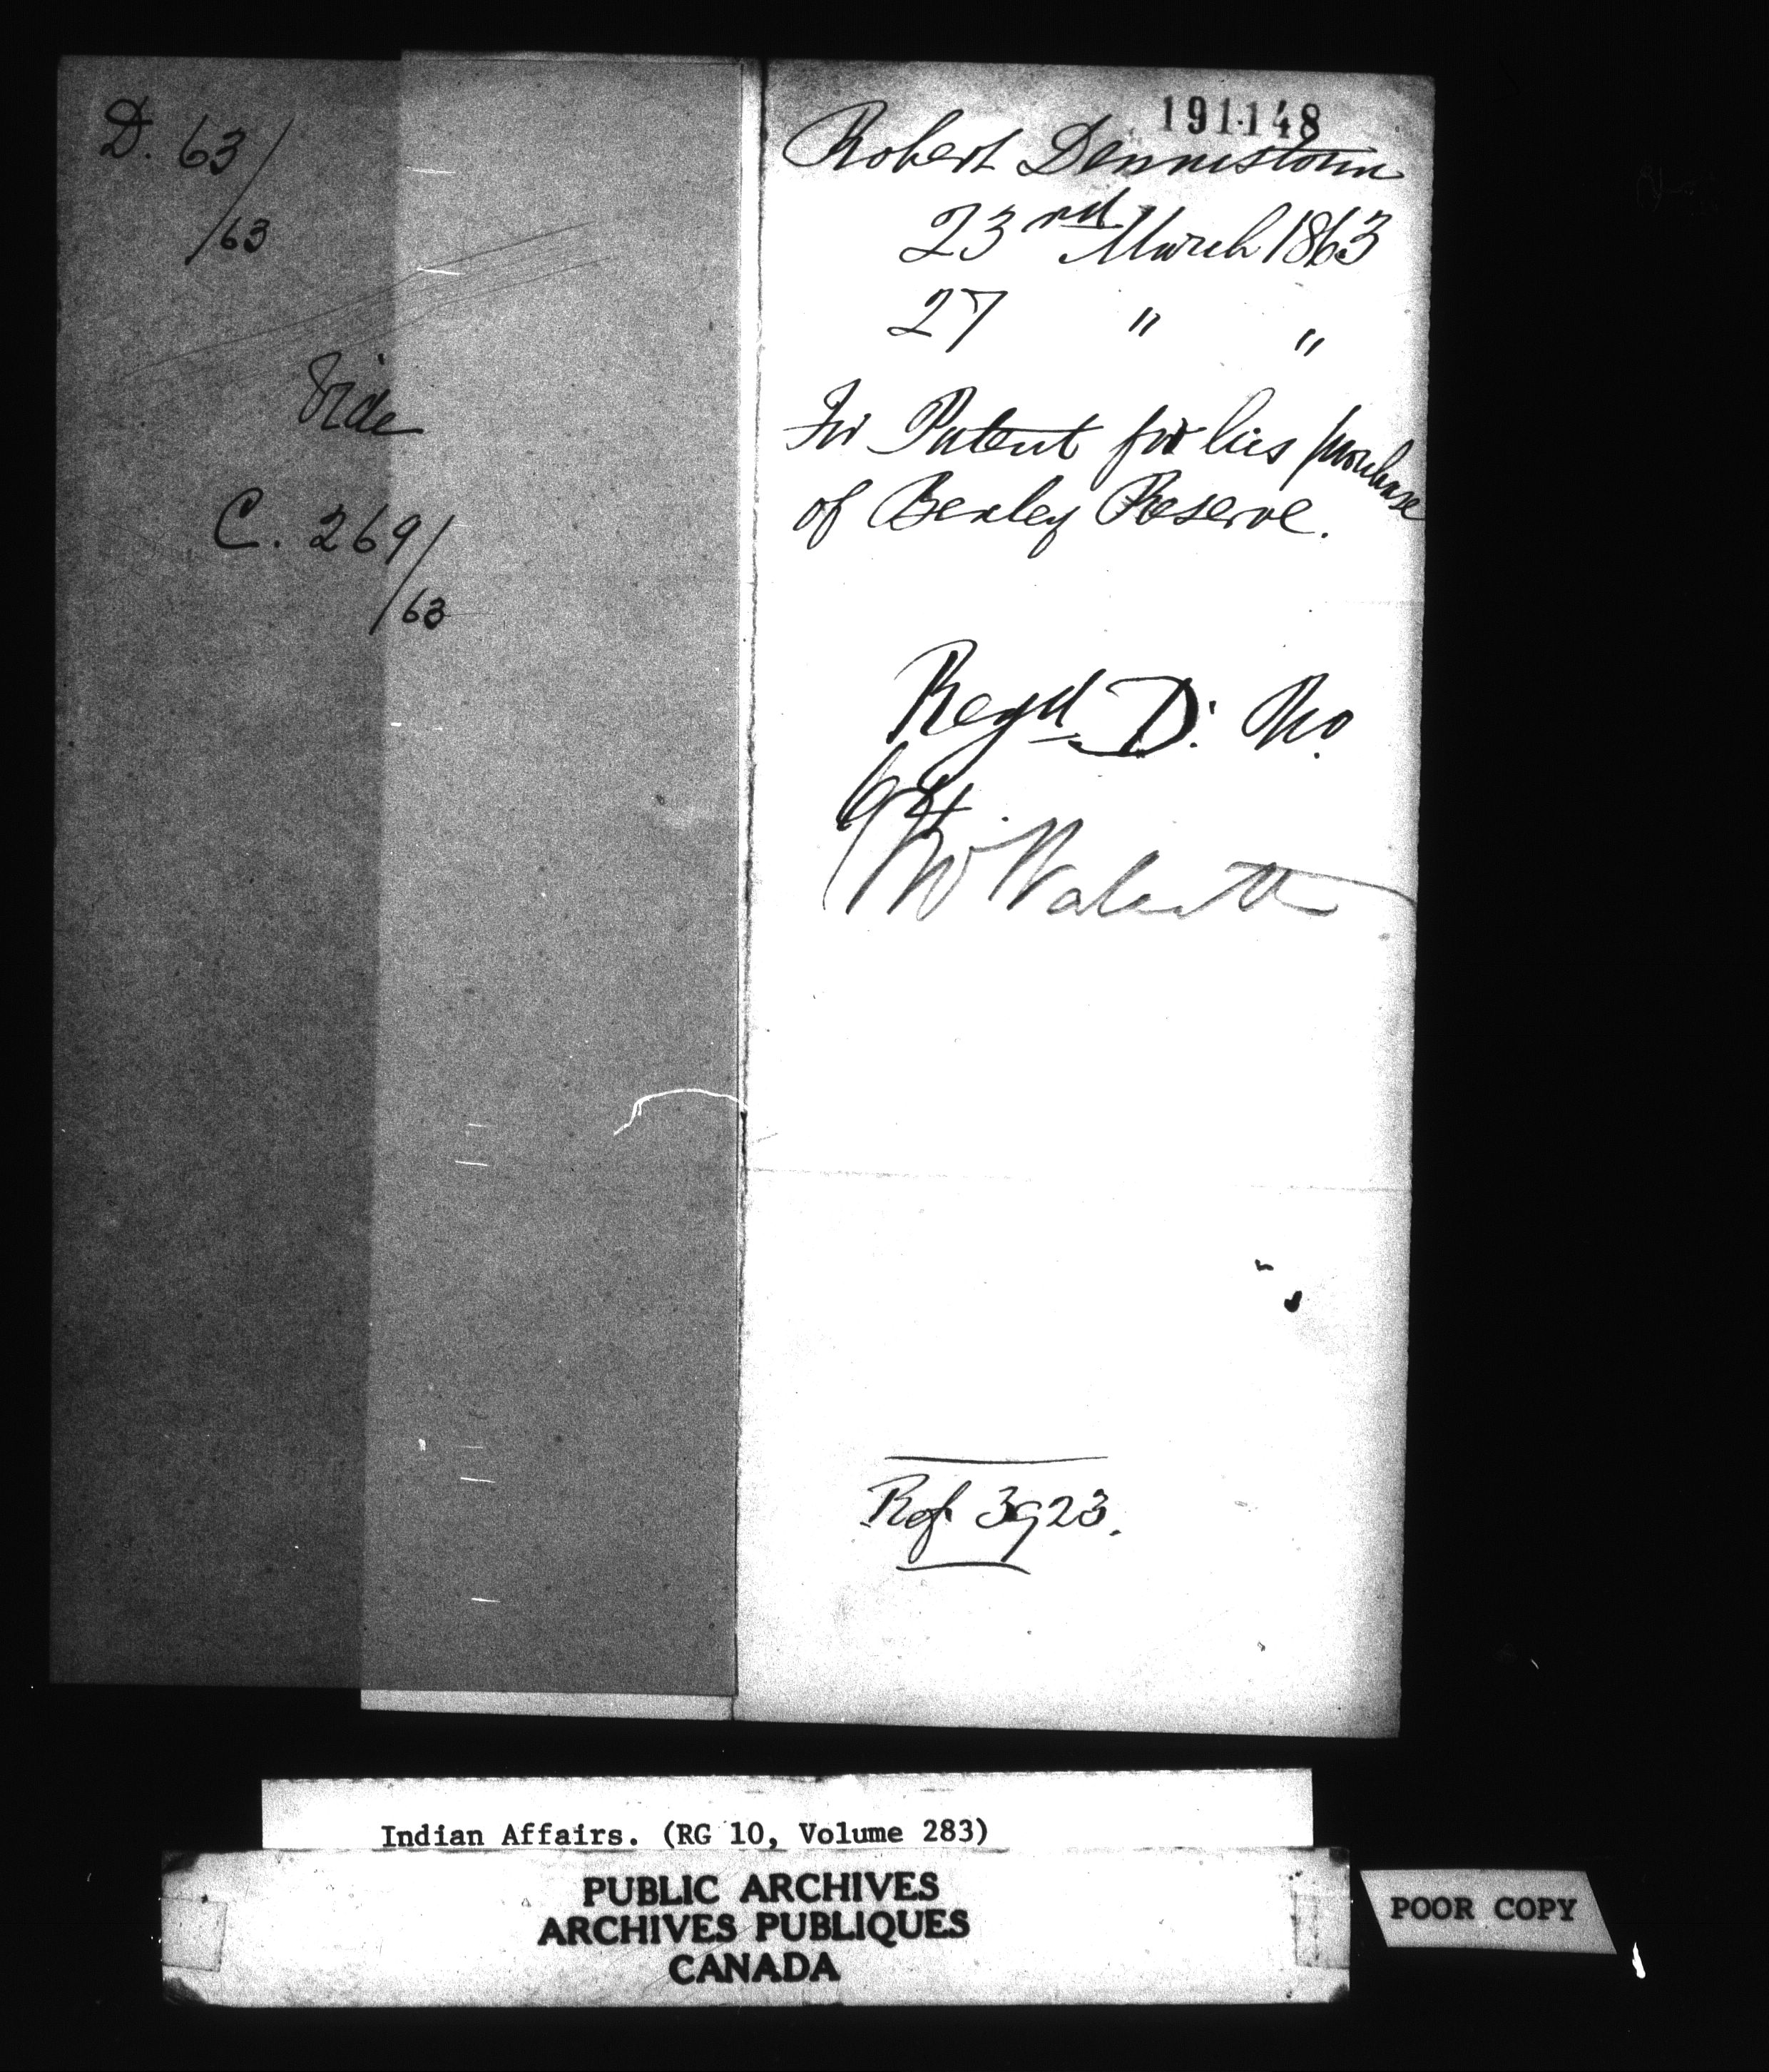 D. 63/
/63
Vide
C. 269/
/63
191148
Robert Dennistoun
23rd March 1863
27 " "
For Patent for his purchase
of Bexley Reserve.
Regd D. No.
Mr Walcott
Ref 3923.
Indian Affairs. (RG 10, Volume 283)
PUBLIC ARCHIVES
ARCHIVES PUBLIQUES
CANADA
POOR COPY